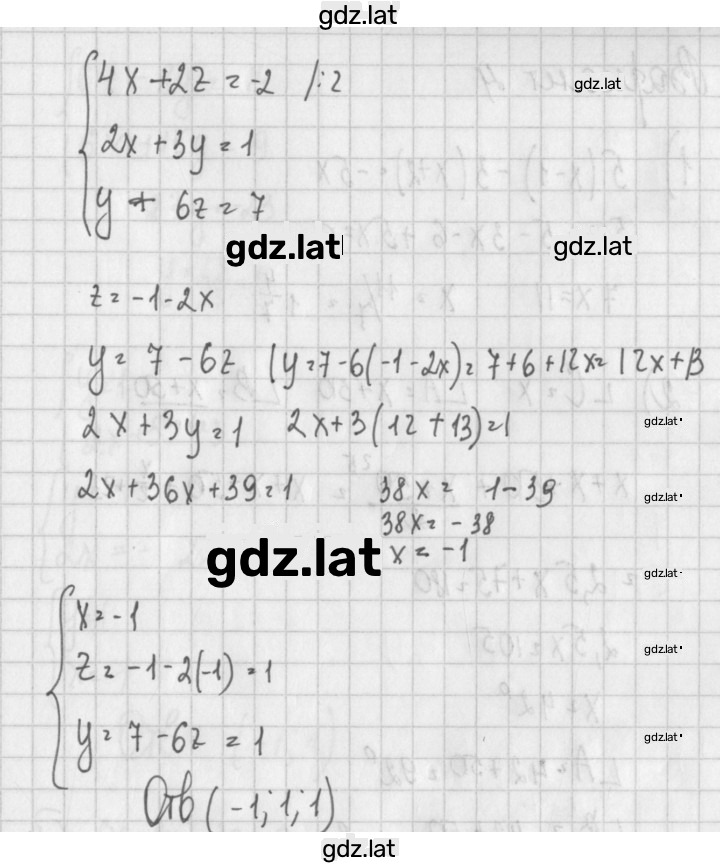 gdz.lat
4x+2z=-2 /:2
gdz.lat
2x+3y=1
y+6z=7
gdz.lat
gdz.lat
z=-1-2x
y=7-6z | y=7-6(-1-2x)=7+6+12x=12x+13
2x+3y=1 2x+3(12+13)=1
gdz.lat
2x+36x+39=1 38x=1-39
gdz.lat
38x=-38
gdz.lat
x=-1
gdz.lat
x=-1
gdz.lat
z=-1-2(-1)=1
y=7-6z=1
gdz.lat
Отв (-1; 1; 1)
gdz.lat